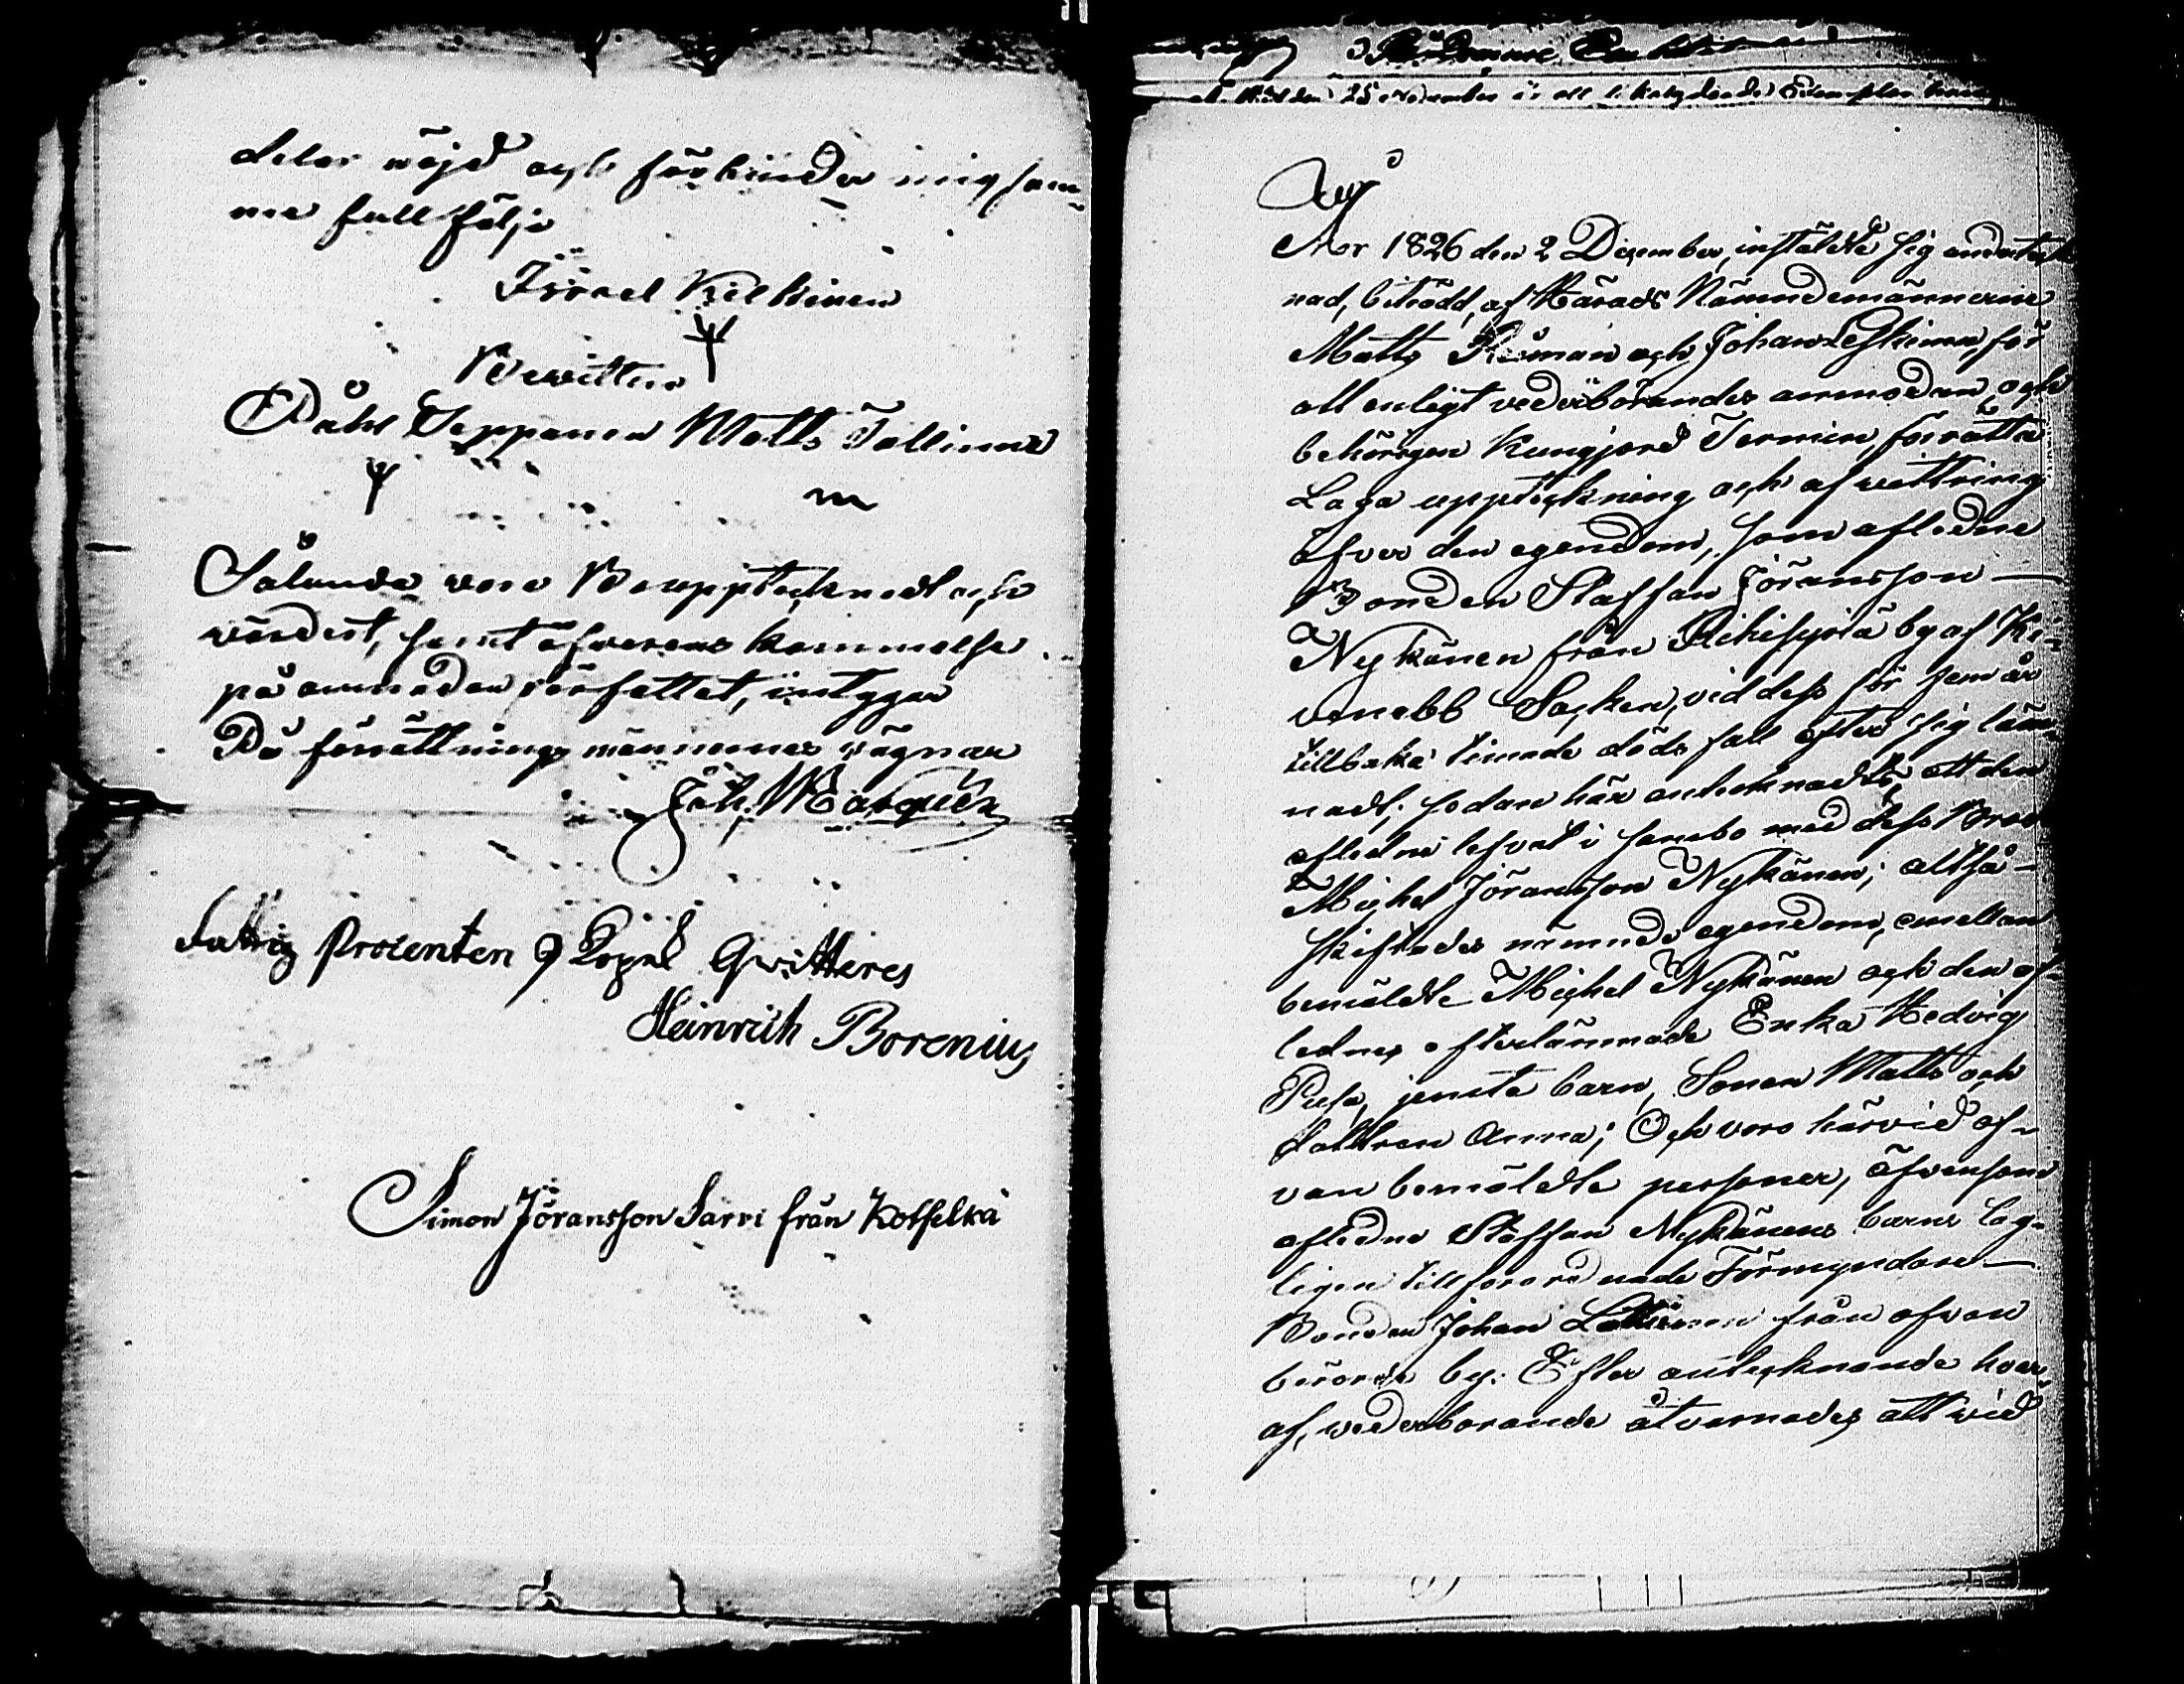 delar nöjd och förbinder mig sam-
me fullfölja
Israel Kilkinen
Bevittna
Påhl Seppänen Matts Tallinen
m
Sålunda vara Beupptecknadt och
värdert, samt öfverens kommelse
på anmodan författat, intygar
På förrättnings männernes vägnar
Joh.
Fattig Procenten 9 Kopek Qvitteres
Heinrich Borenius
Simon Jöransson Sarvi från Kotselkä
25 November
År 1826 den 2 December, instäldte sig undertek-
nad, biträdd, af Härads Nämndemännerne
Matts och Johan Leskinen, för
att enligt vederbörandes anmodan och
behörigen Kungjord Termin, förrätta
Laga uppteckning och af wittring
öfver den egendom, som afledne
Bonden Staffan Jöransson
Nykänen från by af Ki-
venebb Sochen, vid dess för fem år
tillbaka timade döds fall efter sig läm-
nadt; sedan här antecknadts, att den
afledne lefvat i sambo med dess Bror
Michel Jöransson Nykänen; altså
skiftades nämnde egendom, emellan
bemäldte Michel Nykänen och den af-
lednes efterlämnade Enka Hedvig
Pusa, jemte barn, Sonen Matts och
dottren Anna; Och voro härvid of-
van bemäldte personer, äfvensom
afledne Staffan Nykänens barns lag-
ligen tillförordnade Förmyndare
Bonden Johan från ofvan
berörde by. Efter antecknande hvar-
af, wederbörande åtvarnades att wid